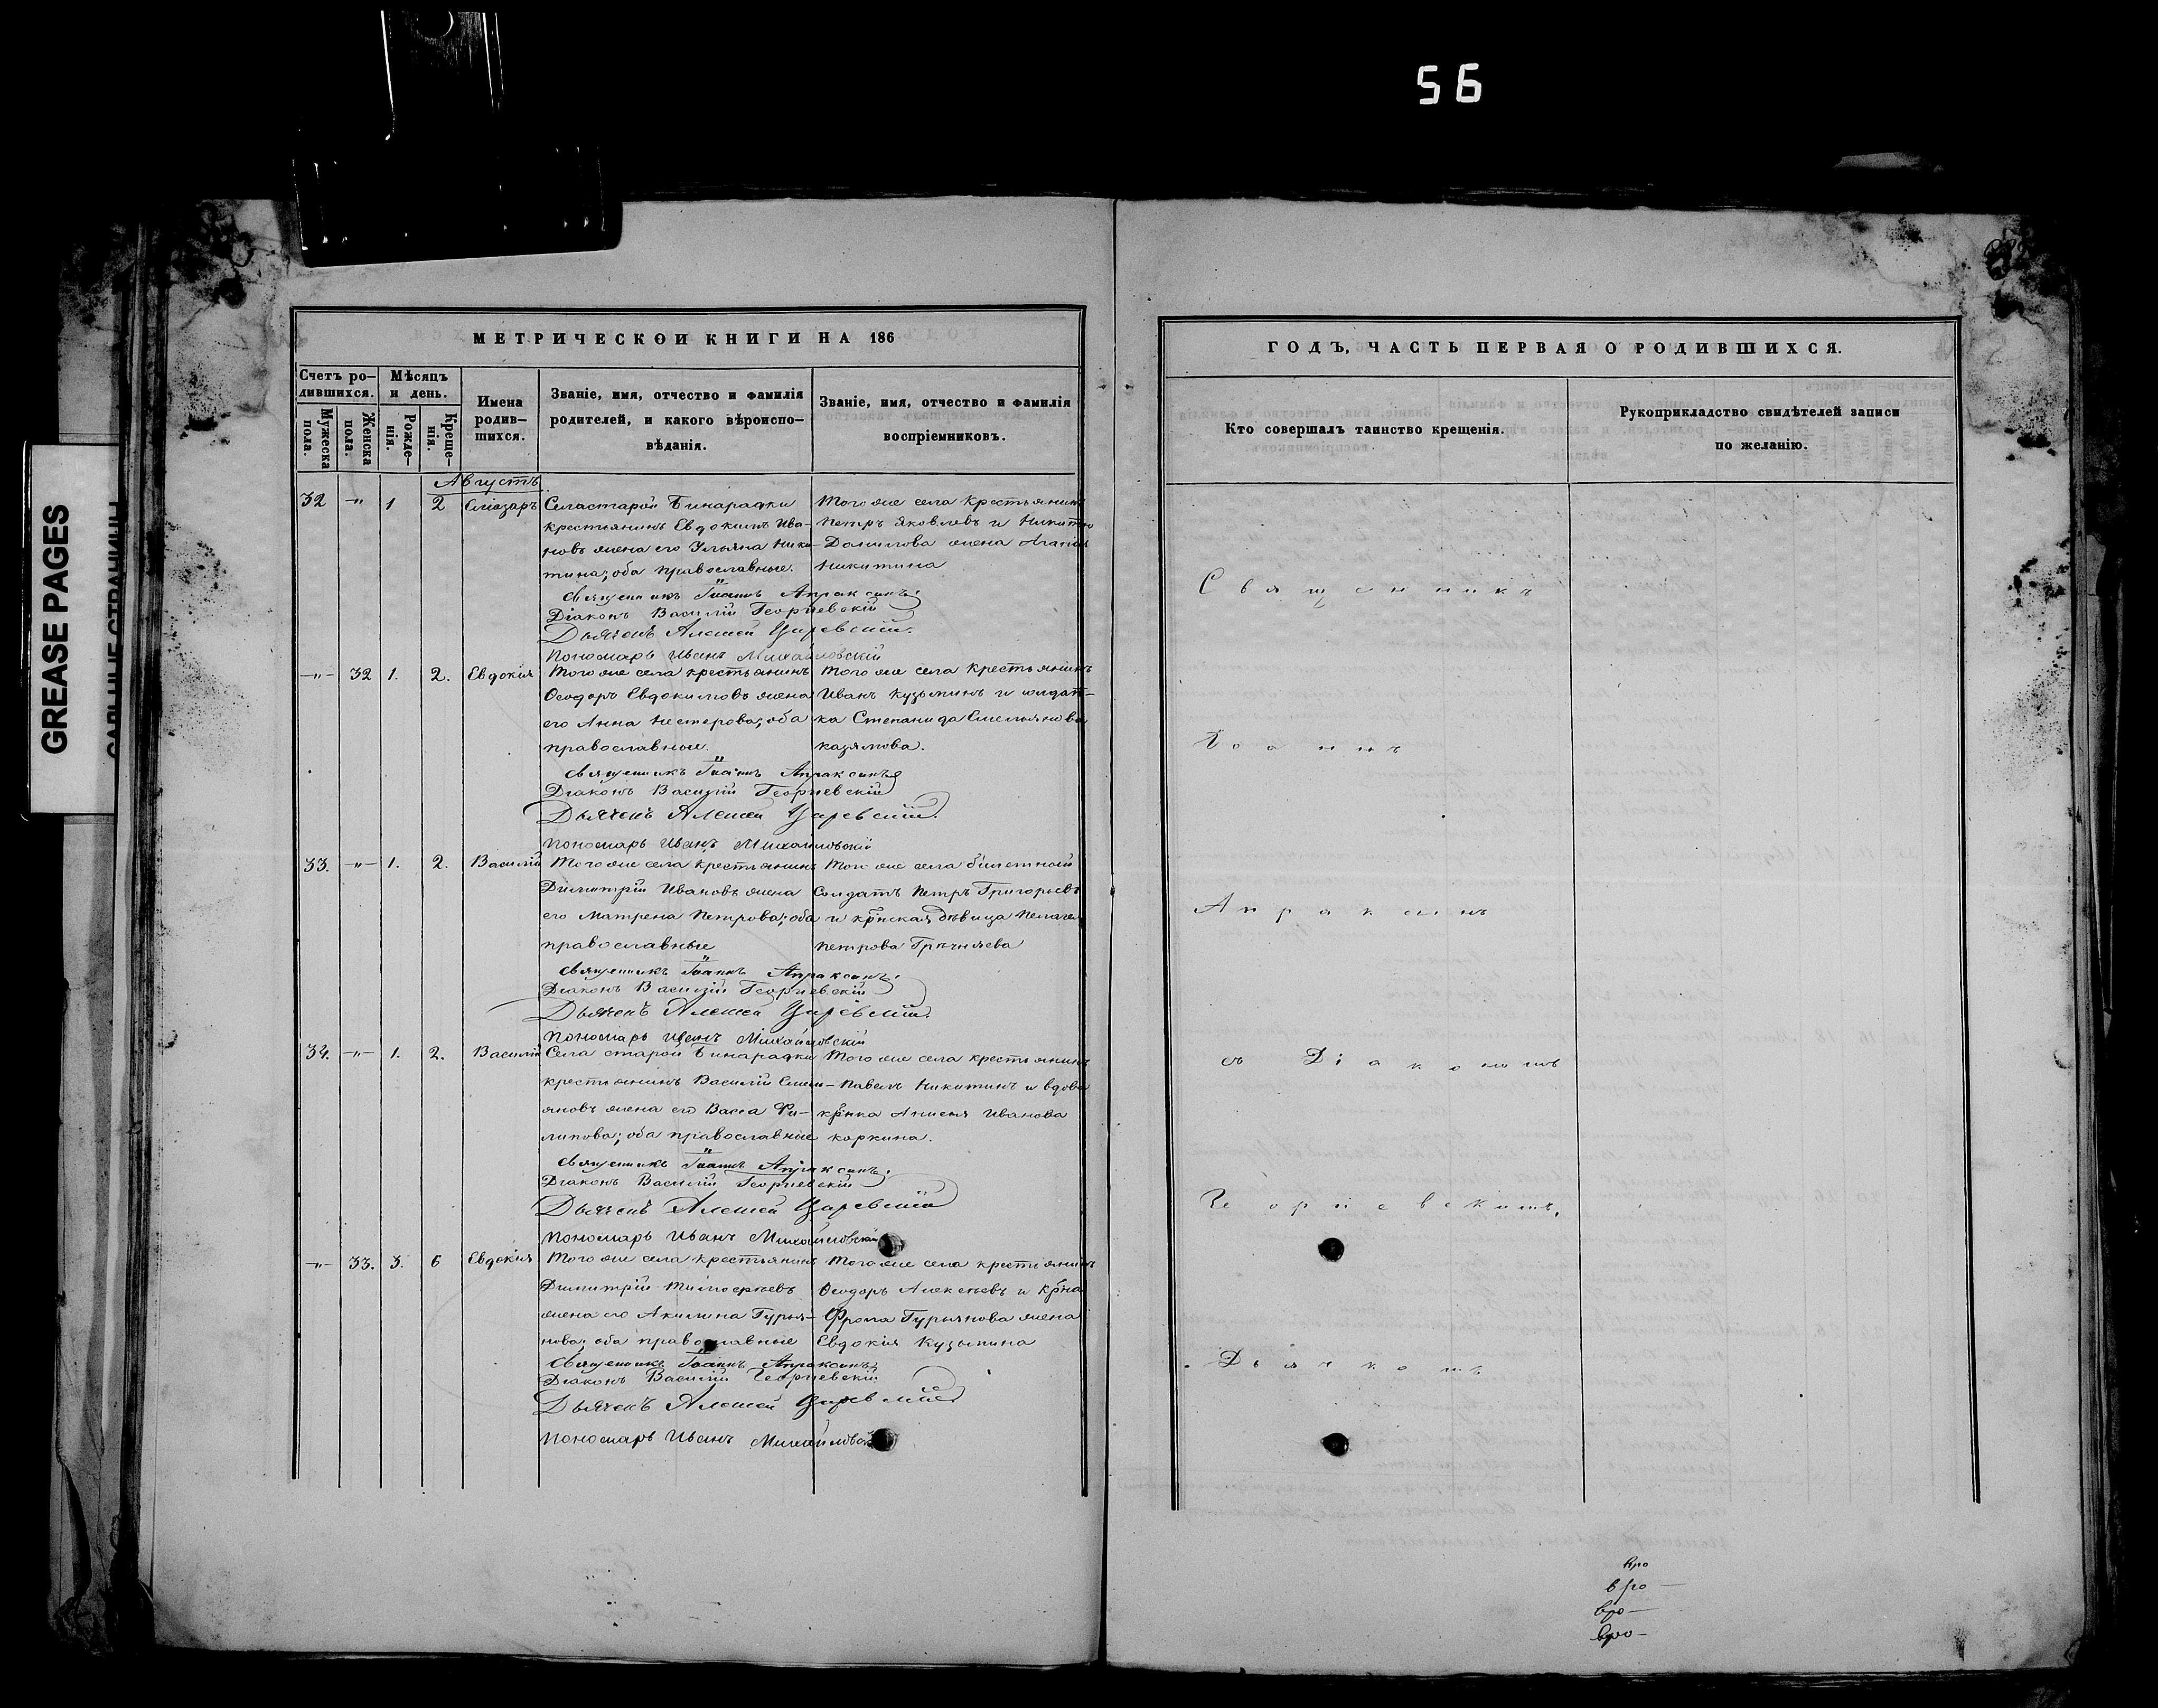 56
GREASE PAGES
МЕТРИЧЕСКОЙ КНИГИ НА 186
Счетъ ро-
дившихся.
Мужеска
пола.
Женска
пола.
Мѣсяцъ
и день.
Рожде-
нія.
Креще-
нія.
Имена
родив-
шихся.
Званіе, имя, отчество и фамилія
родителей, и какого вѣроиспо-
вѣданія.
Званіе, имя, отчество и фамилія
воспріемниковъ.
Августъ
32 -"- 1 2 Еліазаръ Села старой Бинарадки Того же села крестьянинъ
крестьянинъ Евдокимъ Ива- Петръ Яковлевъ и Никиты
новъ жена его Ульяна Ники- Данилова жена Агапія
тина; оба православные. Никитина
Священникъ Іоаннъ Апраксинъ
Діаконъ Василій Георгіевскій
Дьячекъ Алексей Царевскій.
Пономарь Иванъ Михайловскій
-"- 32 1. 2. Евдокія Того же села крестьянинъ Того же села крестьянинъ
Ѳеодоръ Евдокимовъ жена Иванъ Кузьминъ и солдат-
его Анна Нестерова; оба ка Степанида Емельянова
православные.
Священникъ Іоаннъ Апраксинъ
Діаконъ Василій Георгіевскій
Дьячекъ Алексей Царевскій.
Пономарь Иванъ Михайловскій
33. -"- 1. 2. Василій Того же села крестьянинъ Того же села билетный
Димитрій Ивановъ жена Солдатъ Петръ Григорьевъ
его Матрена Петрова; оба и кр̃нская дѣвица Пелагея
православные Петрова
Священникъ Іоаннъ Апраксинъ
Діаконъ Василій Георгіевскій
Дьячекъ Алексей Царевскій.
Пономарь Иванъ Михайловскій
34. -"- 1. 2. Василій Села старой Бинарадки Того же села крестьянинъ
крестьянинъ Василій Емель- Павелъ Никитинъ и вдова
яновъ жена его Васса Фи- кр̃нка Иванова
липова; оба православные Коркина.
Священникъ Іоаннъ Апраксинъ
Діаконъ Василій Георгіевскій
Дьячекъ Алексей Царевскій
Пономарь Иванъ Михайловскій
-"- 33. 3. 6 Евдокія Того же села крестьянинъ Того же села крестьянинъ
Димитрій Тимоѳеевъ Ѳеодоръ Алексѣевъ и кр̃на
жена его Акилина Гурья- Фрола Гурьянова жена
нова; оба православные Евдокія Кузьмина
Священникъ Іоаннъ Апраксинъ
Діаконъ Василій Георгіевскій
Дьячекъ Алексей Царевскій
Пономарь Иванъ Михайловскій
ГОДЪ, ЧАСТЬ ПЕРВАЯ О РОДИВШИХСЯ.
Кто совершалъ таинство крещенія.
Рукоприкладство свидѣтелей записи
по желанію.
Священникъ
Іоаннъ
Апраксинъ
съ Діакономъ
Георгіевскимъ,
Дьячкомъ
вро
вро-
вро-
вро-